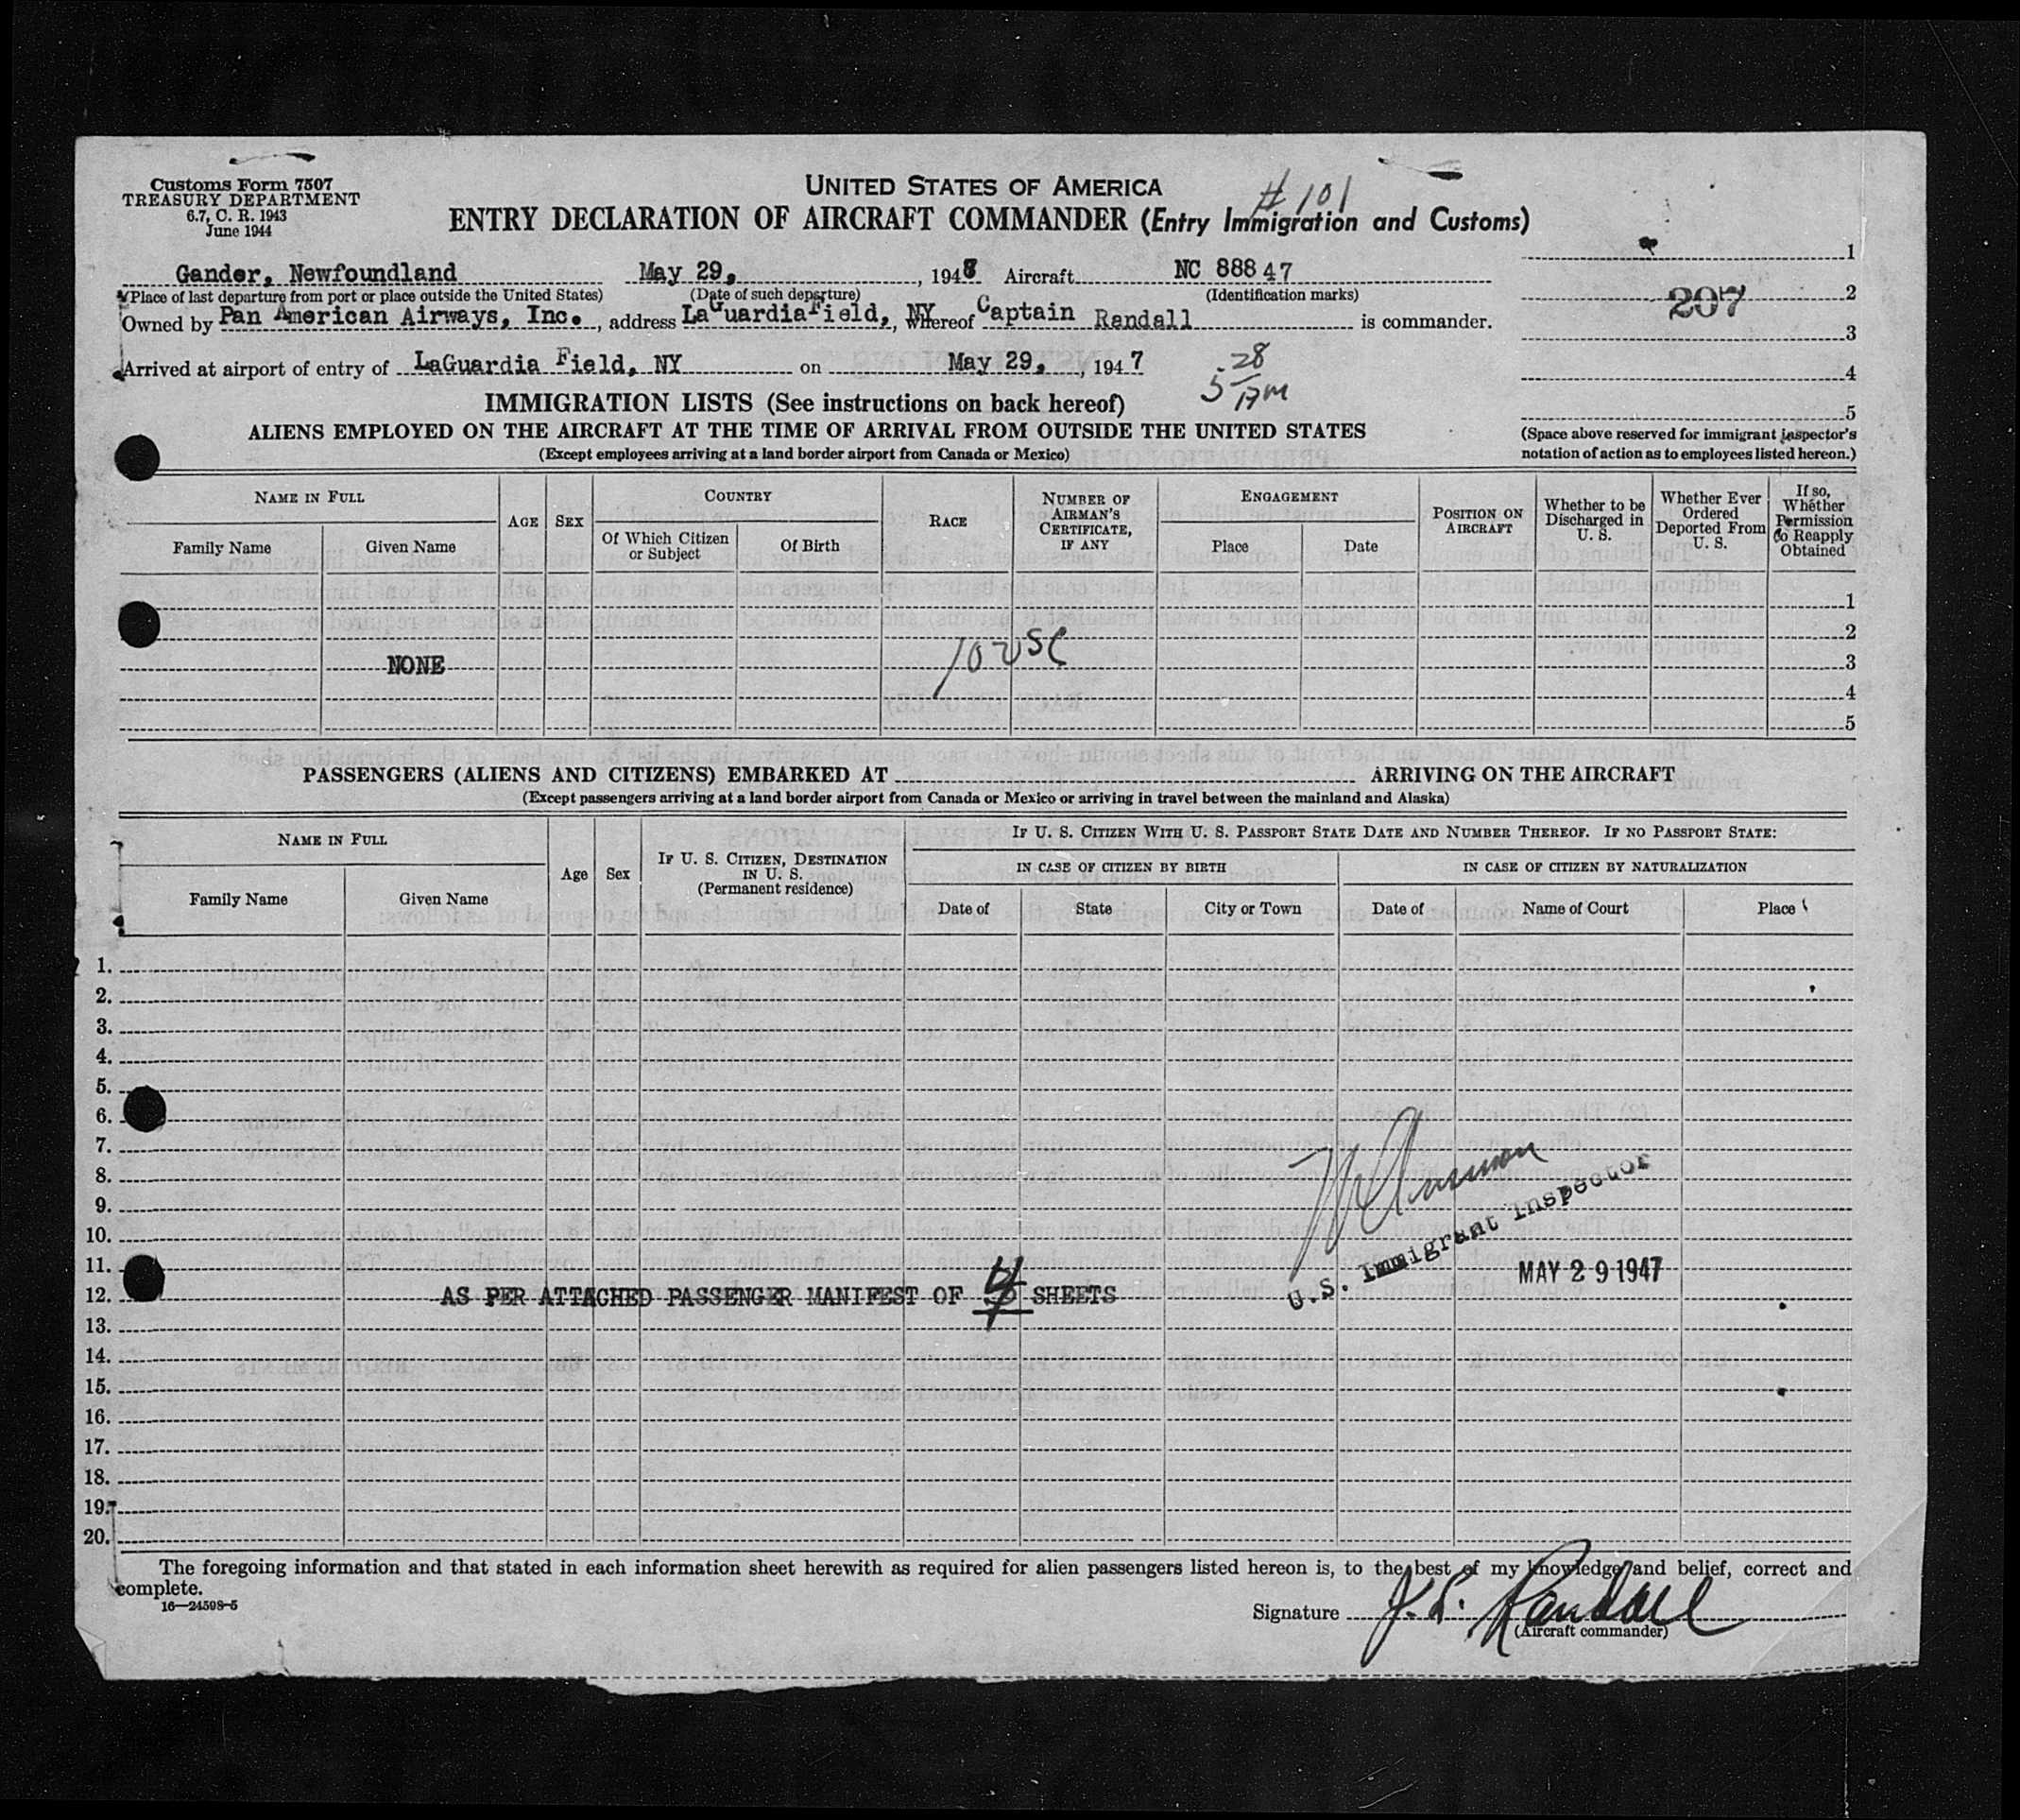 Customs Form 7507
TREASURY DEPARTMENT
6.7, C. R. 1943
June 1944
UNITED STATES OF AMERICA
# 101
ENTRY DECLARATION OF AIRCRAFT COMMANDER (Entry Immigration and Customs)
Gander, Newfoundland May 29, 1947 Aircraft NC 88847
(Place of last departure from port or place outside the United States) (Date of such departure) (Identification marks)
Owned by Pan American Airways, Inc., address LaGuardia Field, NY, whereof Captain Randall is commander.
Arrived at airport of entry of LaGuardia Field, NY on May 29, 1947
5 28 AM
1
207 2
3
4
5
(Space above reserved for immigrant inspector's
notation of action as to employees listed hereon.)
IMMIGRATION LISTS (See instructions on back hereof)
ALIENS EMPLOYED ON THE AIRCRAFT AT THE TIME OF ARRIVAL FROM OUTSIDE THE UNITED STATES
(Except employees arriving at a land border airport from Canada or Mexico)
NAME IN FULL
Family Name Given Name
AGE
SEX
COUNTRY
Of Which Citizen
or Subject
Of Birth
RACE
NUMBER OF
AIRMAN'S
CERTIFICATE,
IF ANY
ENGAGEMENT
Place Date
POSITION ON
AIRCRAFT
Whether to be
Discharged in
U. S.
Whether Ever
Ordered
Deported From
U. S.
If so,
Whether
Permission
to Reapply
Obtained
1
2
NONE 10 USC 3
4
5
PASSENGERS (ALIENS AND CITIZENS) EMBARKED AT ARRIVING ON THE AIRCRAFT
(Except passengers arriving at a land border airport from Canada or Mexico or arriving in travel between the mainland and Alaska)
NAME IN FULL
Family Name Given Name
Age
Sex
IF U. S. CITIZEN, DESTINATION
IN U. S.
(Permanent residence)
IF U. S. CITIZEN WITH U. S. PASSPORT STATE DATE AND NUMBER THEREOF. IF NO PASSPORT STATE:
IN CASE OF CITIZEN BY BIRTH
Date of State City or Town
IN CASE OF CITIZEN BY NATURALIZATION
Date of Name of Court Place
1.
2.
3.
4.
5.
6.
7.
8.
9.
10.
11.
12. AS PER ATTACHED PASSENGER MANIFEST OF 4 SHEETS
U.S. Immigrant Inspector
MAY 29 1947
13.
14.
15.
16.
17.
18.
19.
20.
The foregoing information and that stated in each information sheet herewith as required for alien passengers listed hereon is, to the best of my knowledge and belief, correct and
complete.
16—24598-5
Signature J. L. Randall
(Aircraft commander)